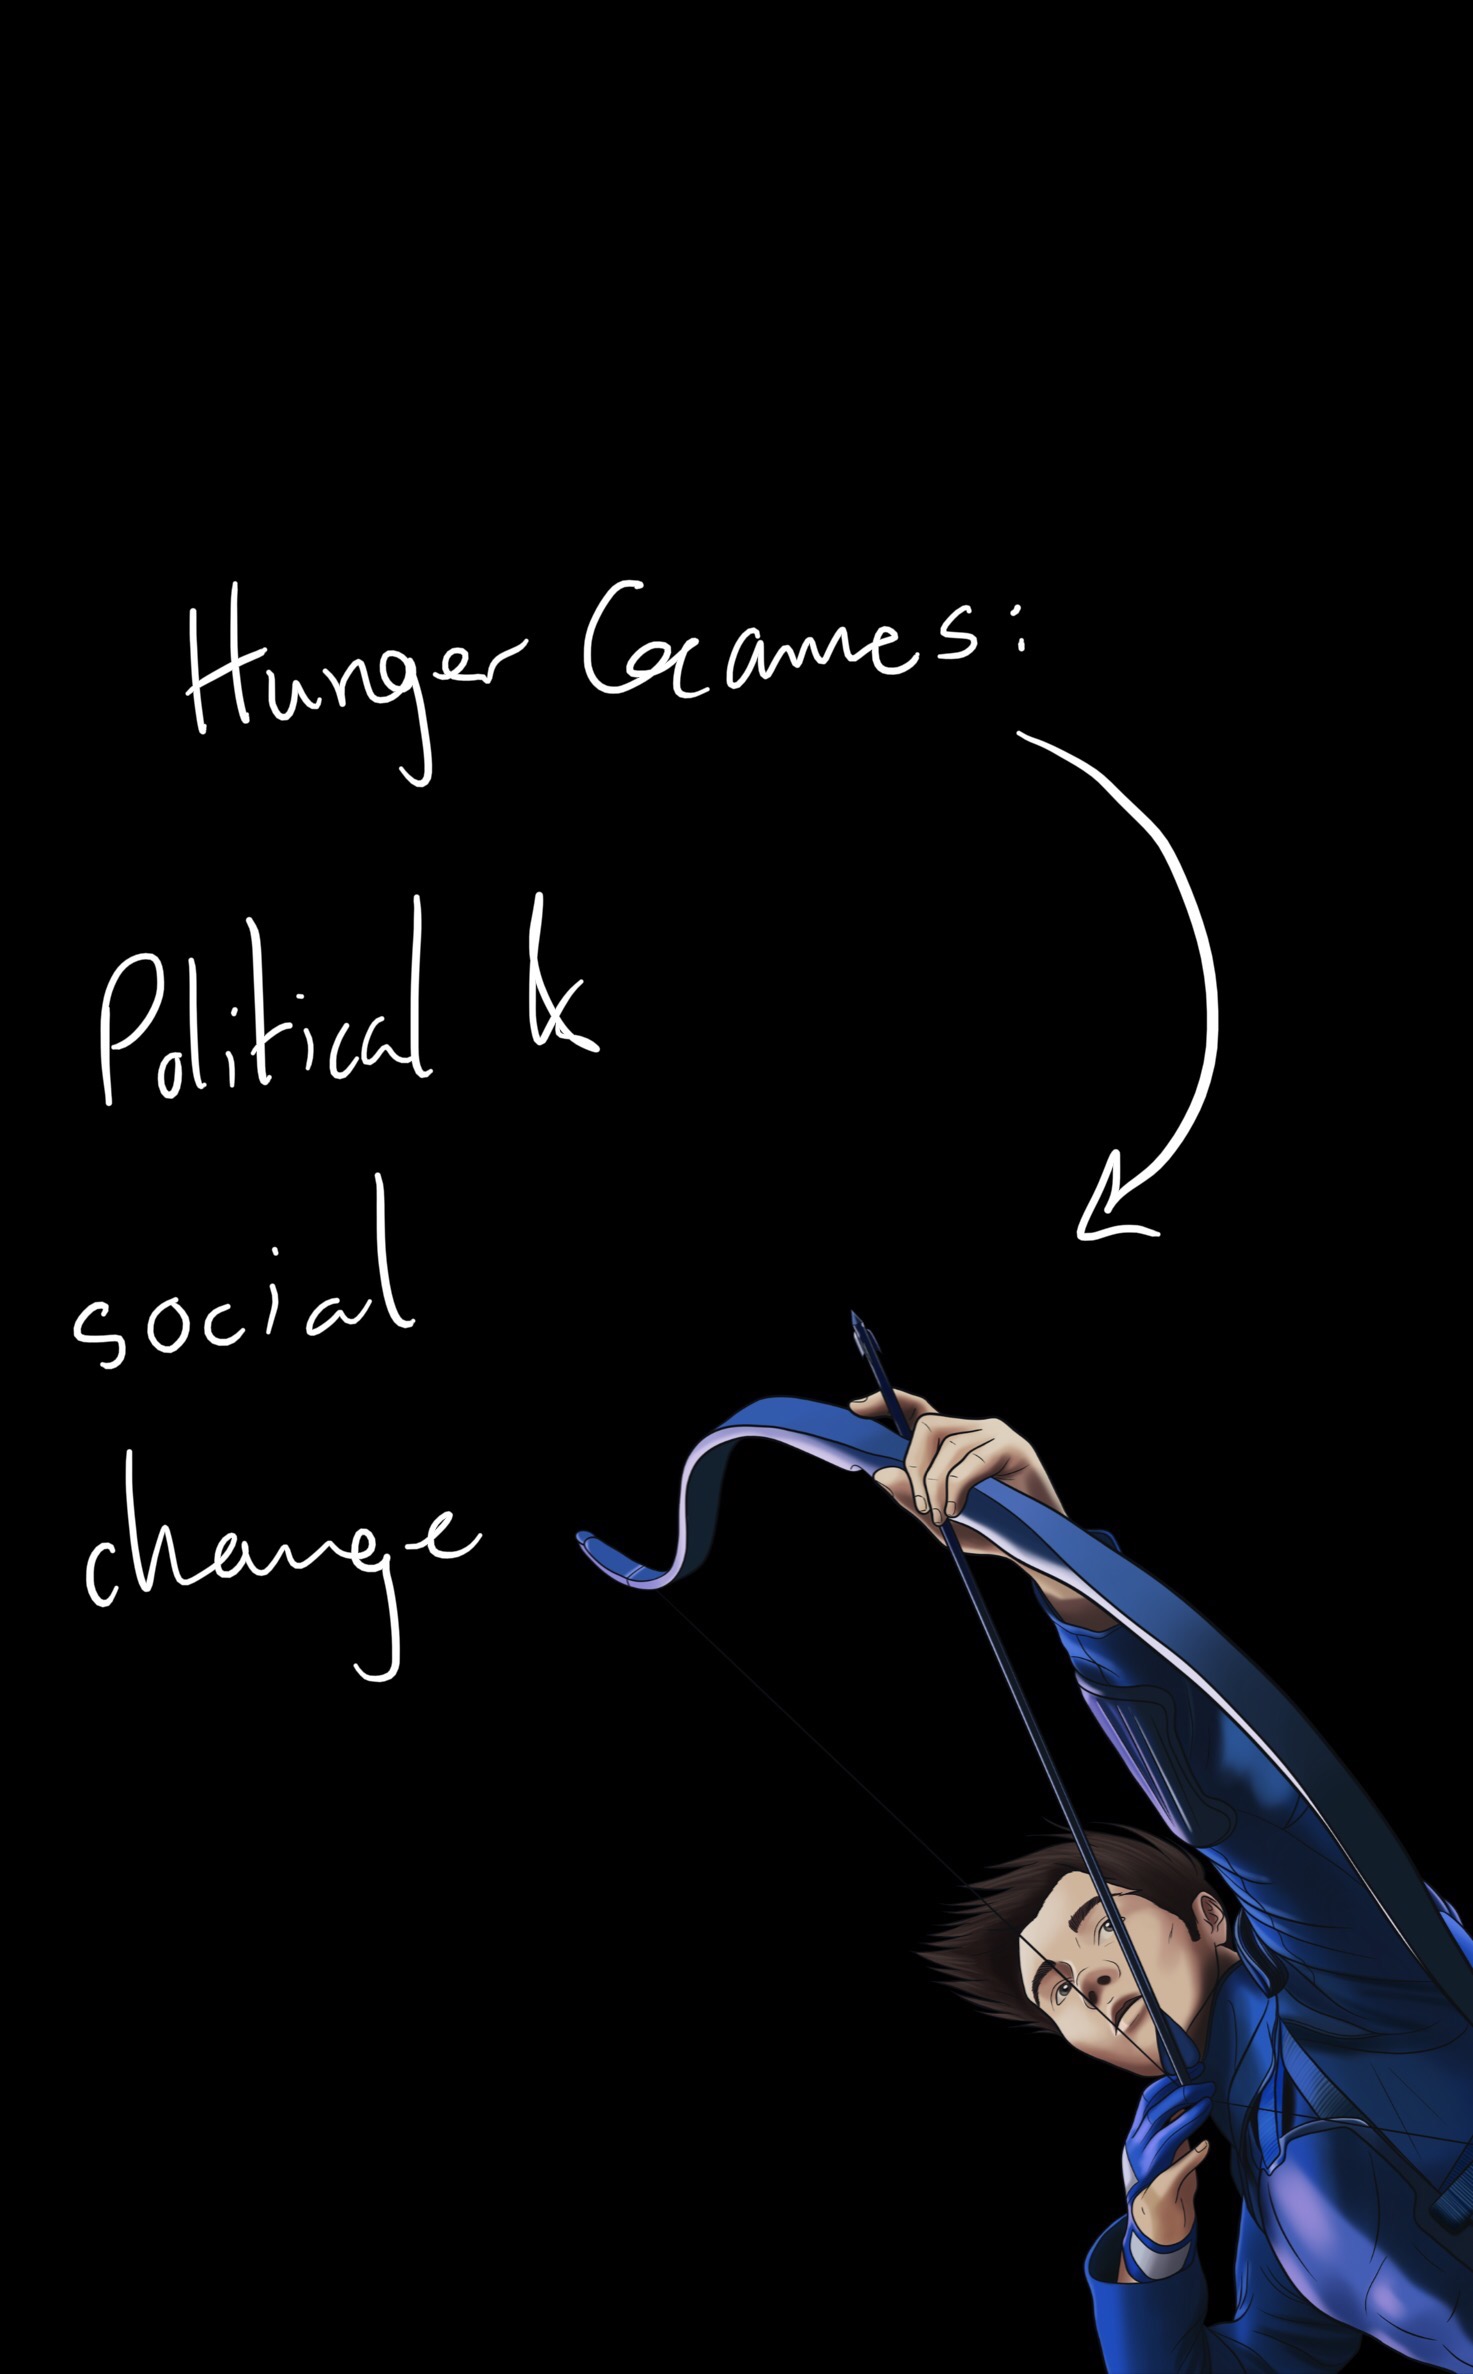 Hunger Games:
Political &
social
change